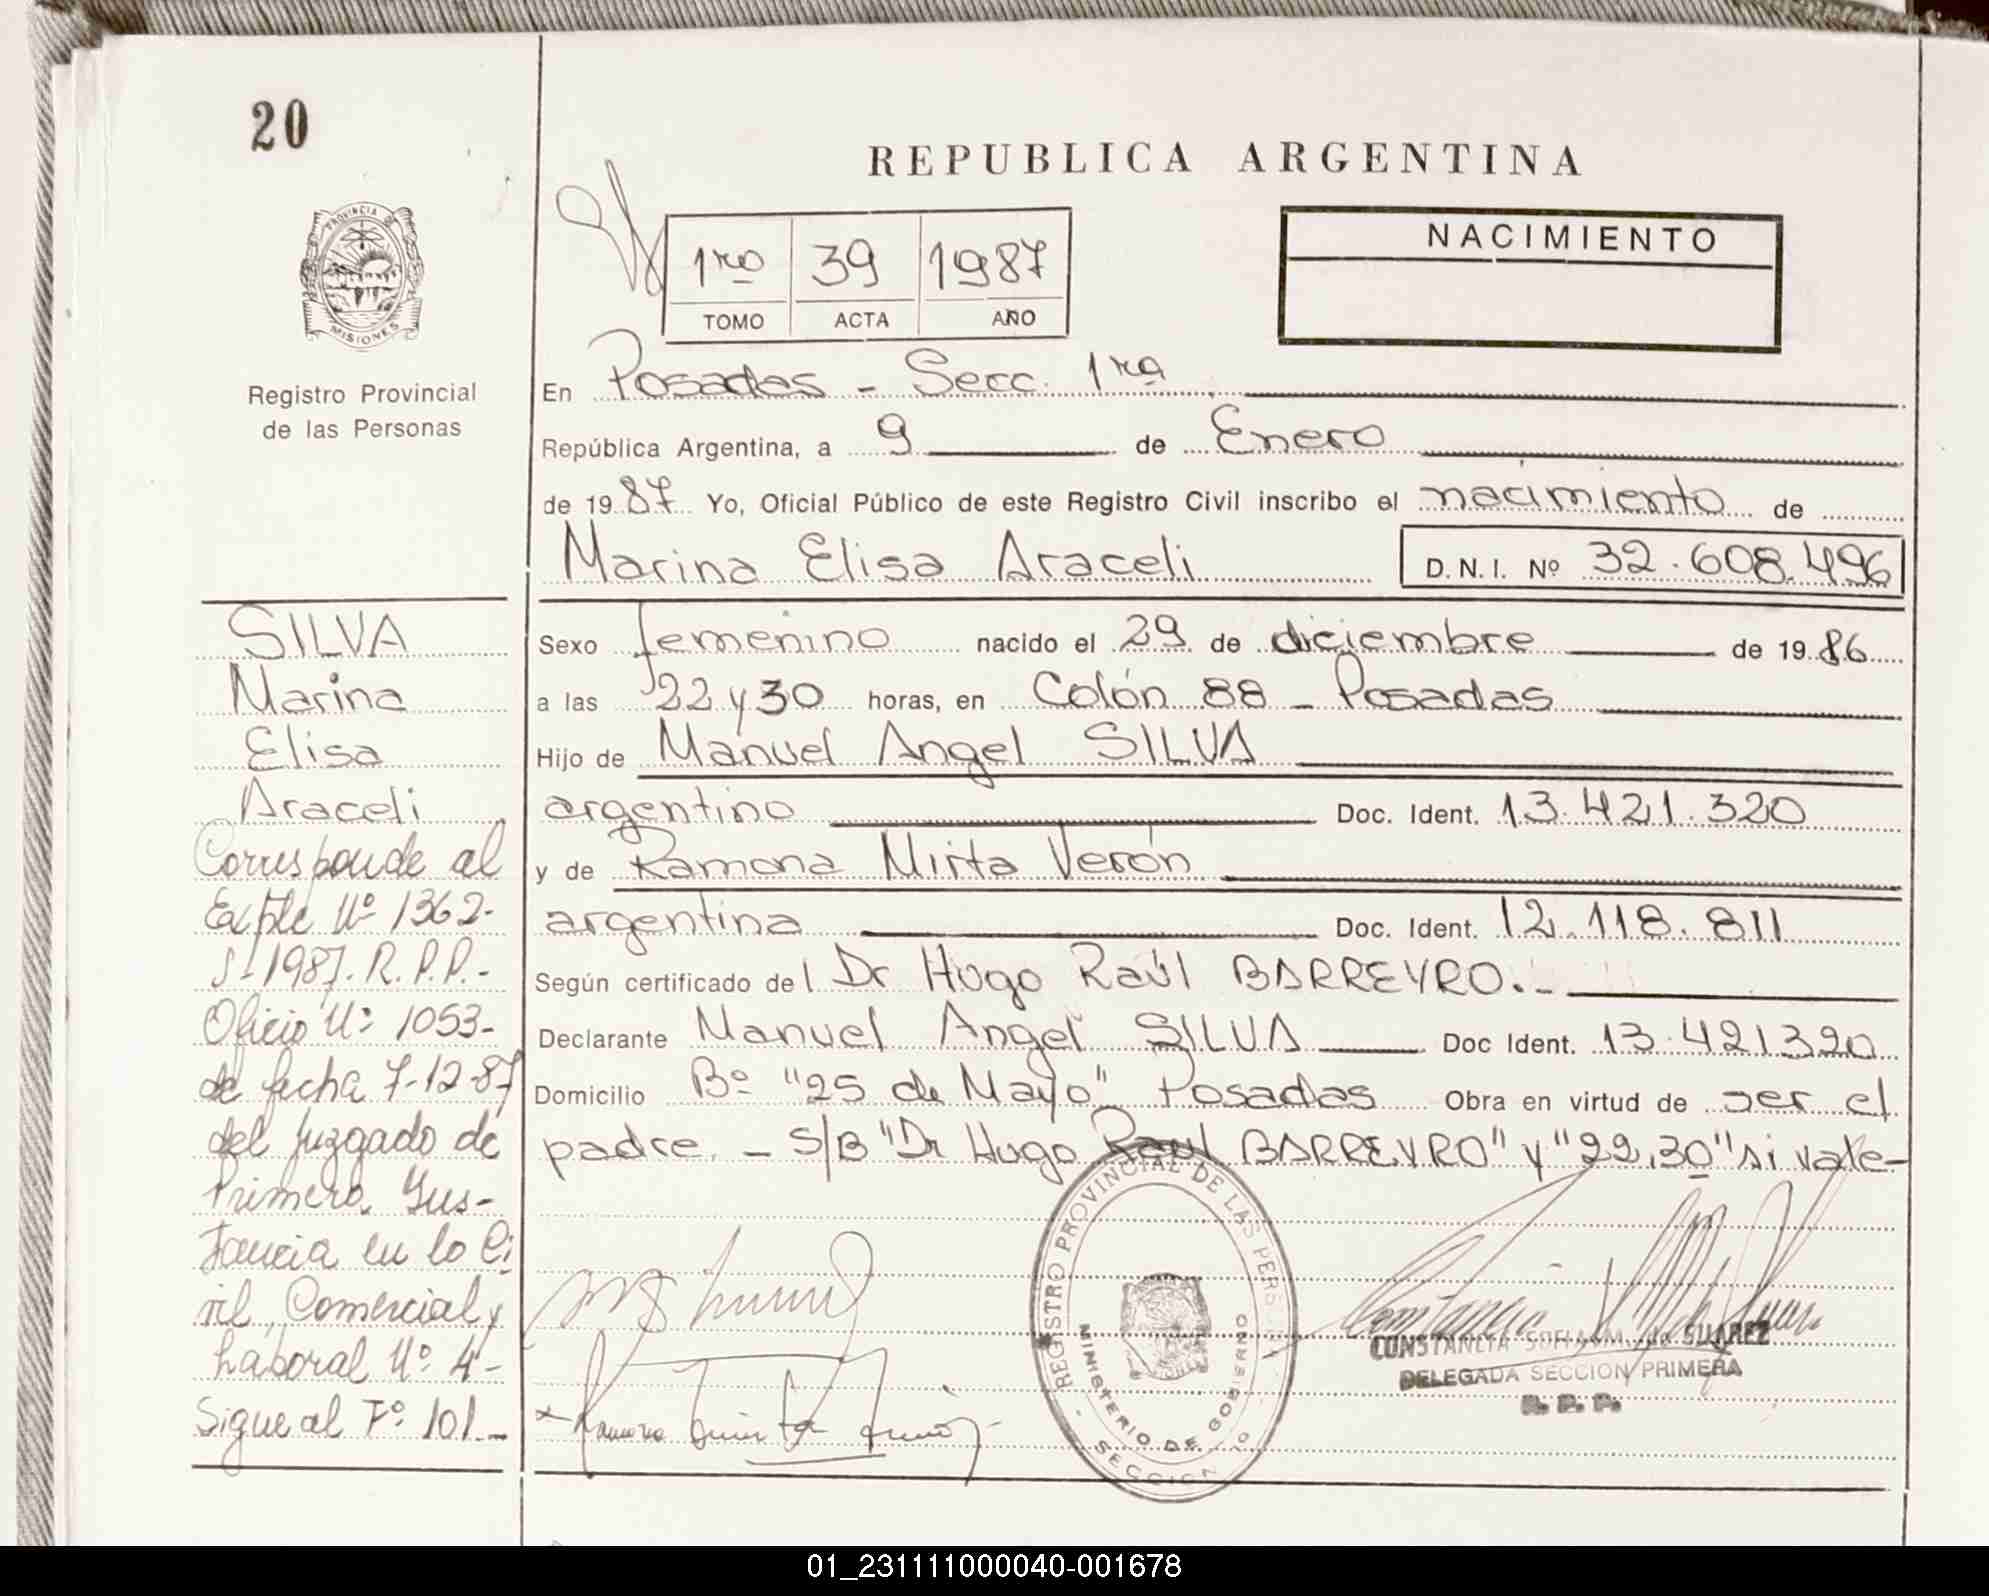 20
REPUBLICA ARGENTINA
PROVINCIA DE
MISIONES
Registro Provincial
de las Personas
1ro 39 1987
TOMO ACTA AÑO
NACIMIENTO
En Posadas - Secc. 1ra
República Argentina, a 9 de Enero
de 1987 Yo, Oficial Público de este Registro Civil inscribo el nacimiento de
Marina Elisa Araceli D.N.I. Nº 32.608.496
Sexo femenino nacido el 29 de diciembre de 1986
a las 22 y 30 horas, en Colón 88 - Posadas
Hijo de Manuel Angel SILVA
argentino Doc. Ident. 13.421.320
y de Ramona Mirta Verón
argentina Doc. Ident. 12.118.811
Según certificado del Dr Hugo Raúl BARREYRO.-
Declarante Manuel Angel SILVA Doc Ident. 13.421320
Domicilio Bº "25 de Mayo" Posadas Obra en virtud de ser el
padre. - S/B "Dr Hugo Raul BARREYRO" y "22,30" si vale-
SILVA
Marina
Elisa
Araceli
Corresponde al
Expte Nº 1362-
S-1987. R.P.P.-
Oficio Nº 1053-
de fecha 7-12-87
del Juzgado de
Primera Ins-
tancia en lo Ci
vil, Comercial y
Laboral Nº 4-
Sigue al Fº 101.-
REGISTRO PROVINCIAL DE LAS PERSONAS
MINISTERIO DE GOBIERNO
SECCION 1º
CONSTANCIA SOFIA M. de SUAREZ
DELEGADA SECCION PRIMERA
R. P. P.
01_231111000040-001678